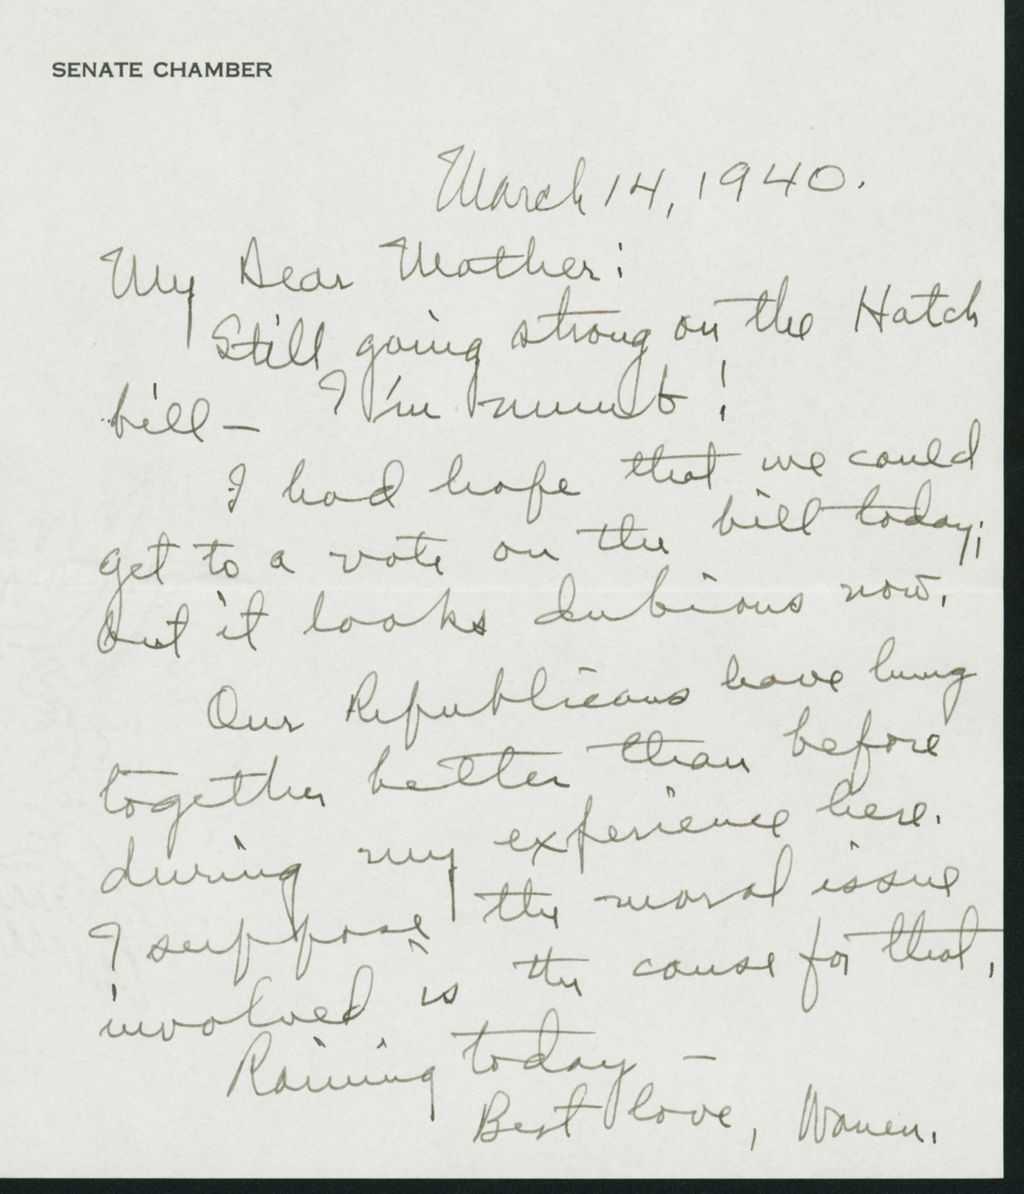 SENATE CHAMBER
March 14, 1940.
My Dear Mother:
Still going strong on the Hatch
bill – I'm numb!
I had hope that we could
get to a vote on the bill today;
but it looks dubious now.
Our Republicans have hung
together better than before
during my experience here.
I suppose the moral issue
involved is the cause for that.
Raining today –
Best love, Warren.